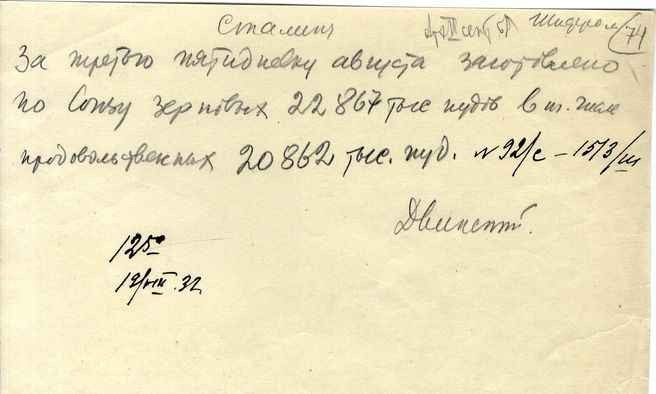 Сталину
Шифром
74
За третью пятидневку августа заготовлено
по Союзу зерновых 22 867 тыс пудов в т. числе
продовольственных 20 862 тыс. пуд. N 92/с – 1513/ш
Двинский.
12 50
19/VIII.32